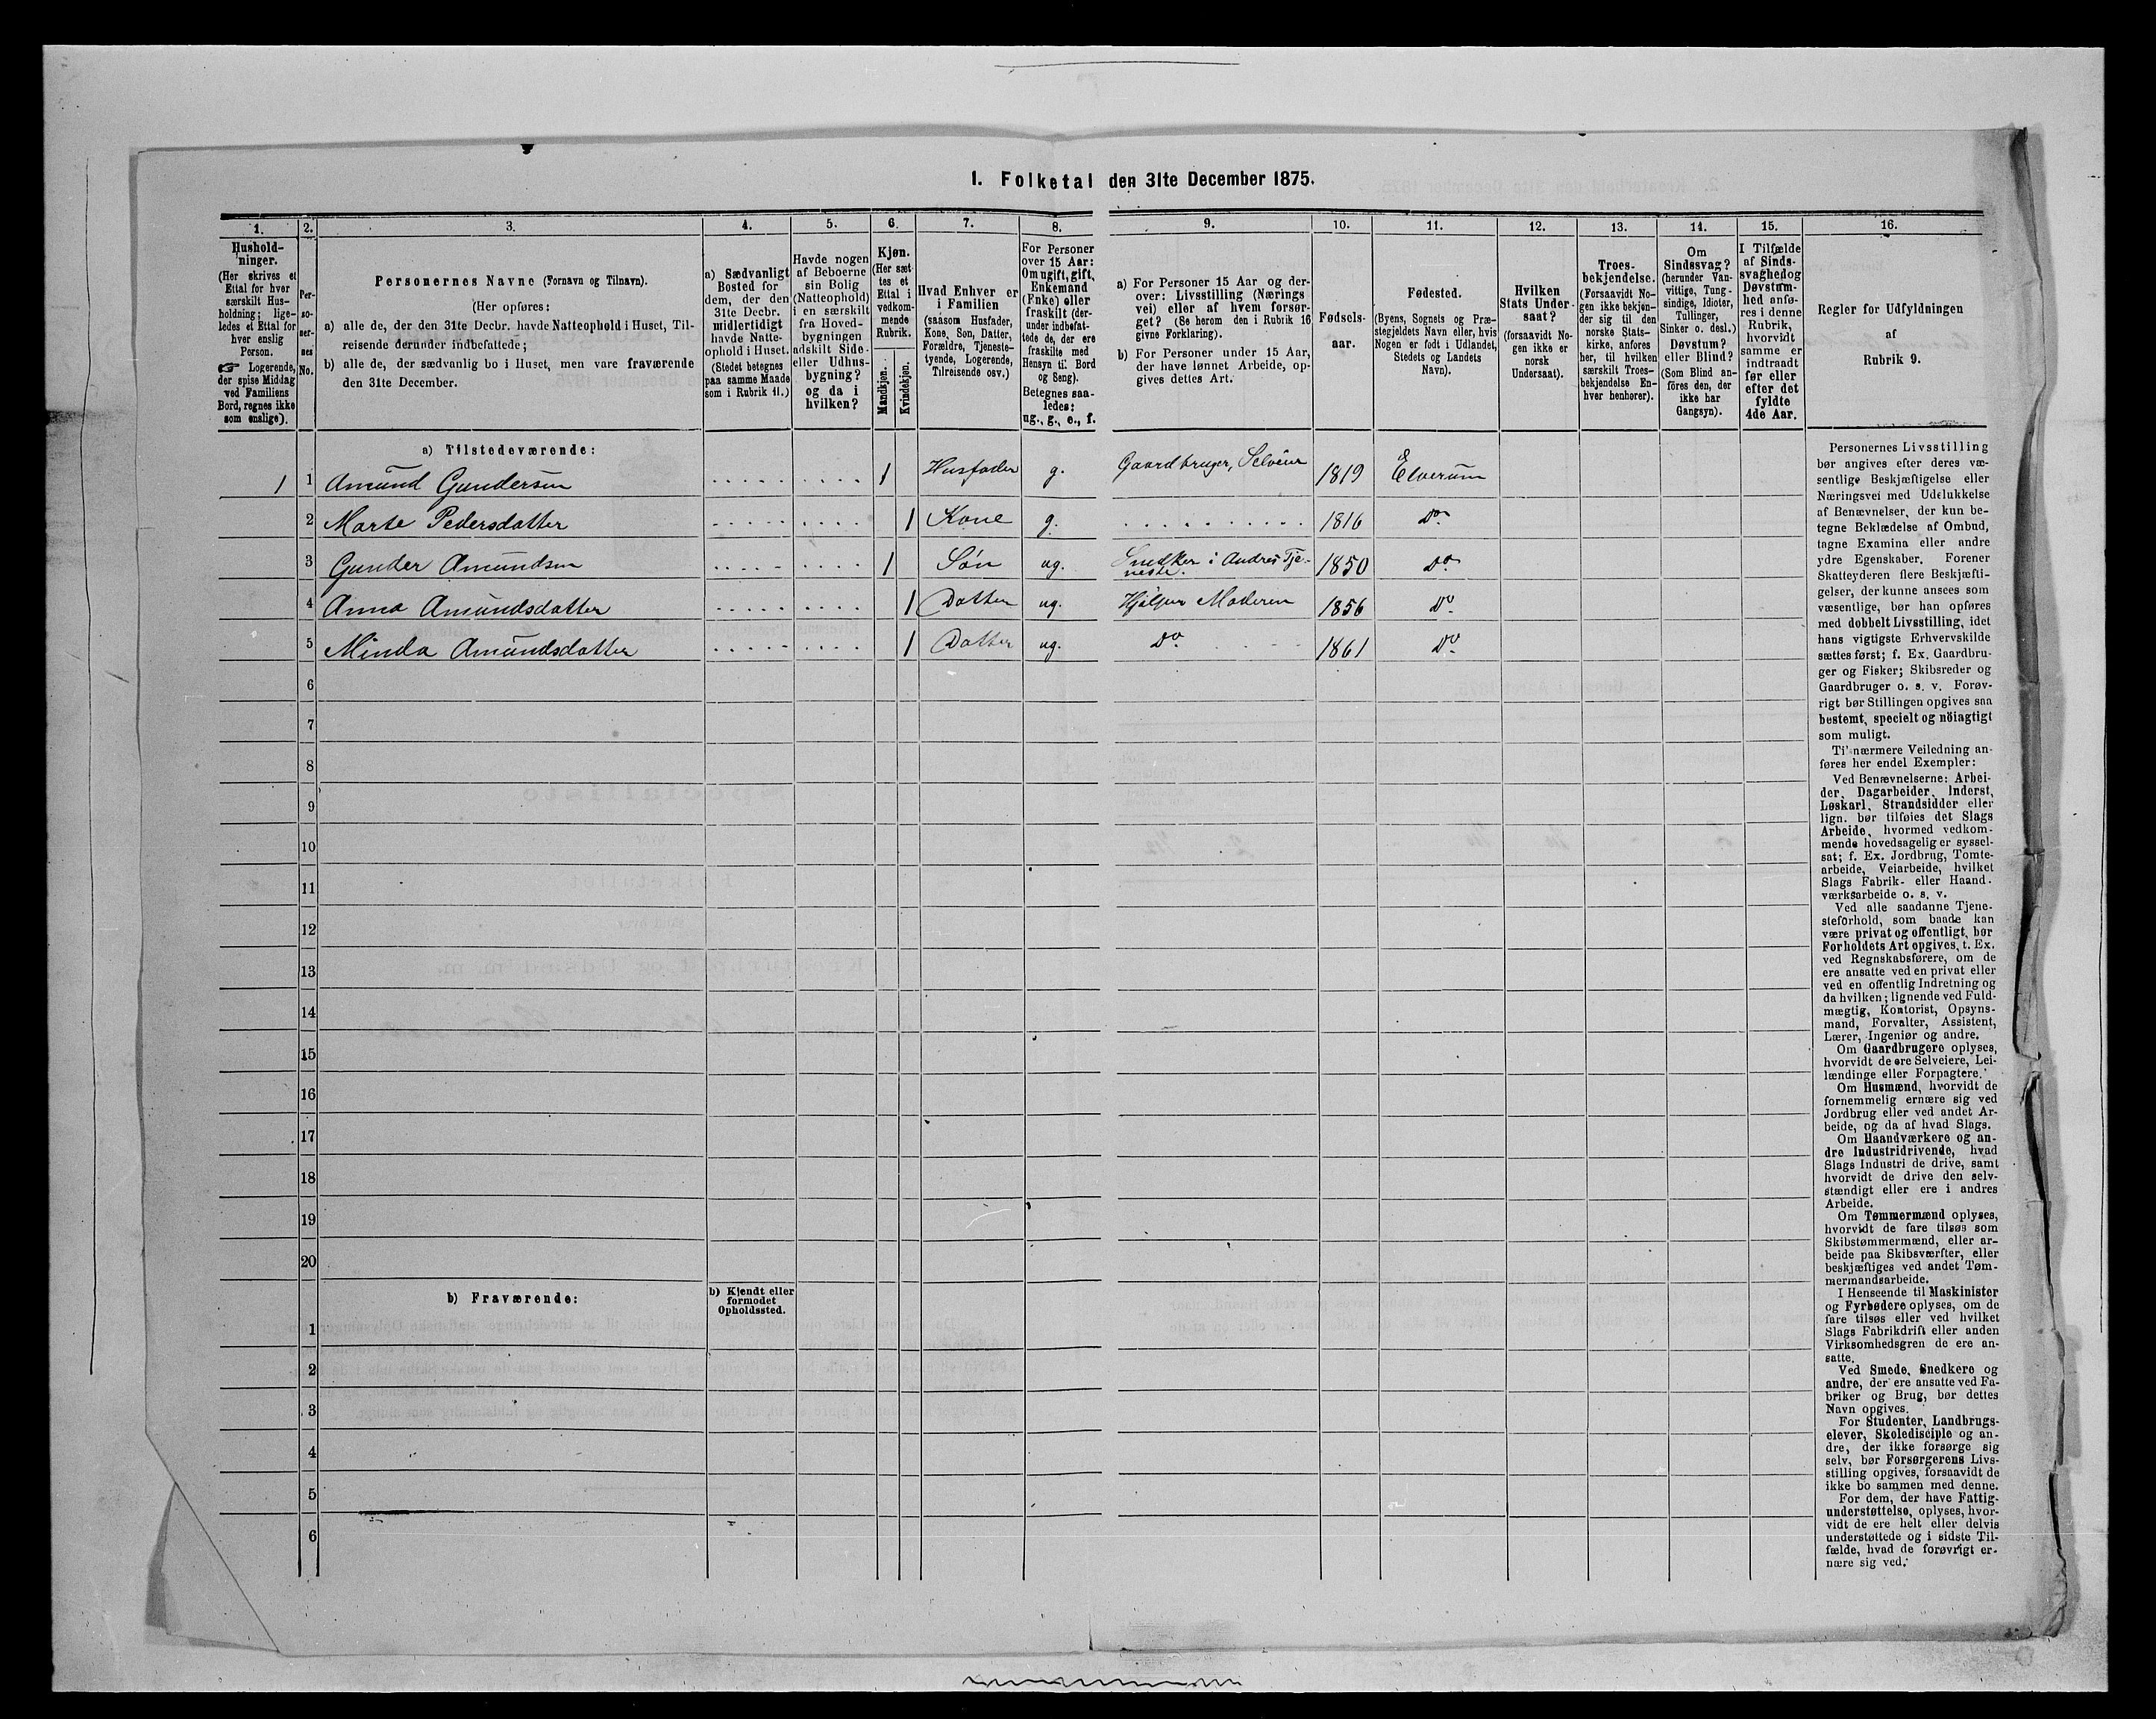 1. Folketal den 31te December 1875.
1. 2. 3. 4. 5. 6. 7. 8. 9. 10. 11. 12. 13. 14. 15. 16.
Hushold-
ninger.
(Her skrives et
Ettal for hver
særskilt Hus-
holdning; lige-
ledes et Ettal for
hver enslig
Person.
☞ Logerende,
der spise Middag
ved Familiens
Bord, regnes ikke
som enslige).
Per-
so-
ner-
nes
No.
Personernes Navne (Fornavn og Tilnavn).
(Her opføres:
a) alle de, der den 31te Decbr. havde Natteophold i Huset, Til-
reisende derunder indbefattede;
b) alle de, der sædvanlig bo i Huset, men vare fraværende
den 31te December.
a) Sædvanligt
Bosted for
dem, der den
31te Decbr.
midlertidigt
havde Natte-
ophold i Huset.
(Stedet betegnes
paa samme Maade
som i Rubrik 11.)
Havde nogen
af Beboerne
sin Bolig
(Natteophold)
i en særskilt
fra Hoved-
bygningen
adskilt Side-
eller Udhus-
bygning?
og da i
hvilken?
Kjøn.
(Her sæt-
tes et
Ettal i
vedkom-
mende
Rubrik.
Mandkjøn.
Kvindekjøn.
Hvad Enhver er
i Familien
(saasom Husfader,
Kone, Søn, Datter,
Forældre, Tjeneste-
tyende, Logerende,
Tilreisende osv.)
For Personer
over 15 Aar:
Om ugift, gift,
Enkemand
(Enke) eller
fraskilt (der-
under indbefat-
tede de, der ere
fraskilte med
Hensyn til Bord
og Seng).
Betegnes saa-
ledes:
ug., g., e., f.
a) For Personer 15 Aar og der-
over: Livsstilling (Nærings
vei) eller af hvem forsør-
get? (Se herom den i Rubrik 16
givne Forklaring).
b) For Personer under 15 Aar,
der have lønnet Arbeide, op-
gives dettes Art.
Fødsels-
aar.
Fødested.
(Byens, Sognets og Præ-
stegjeldets Navn eller, hvis
Nogen er født i Udlandet,
Stedets og Landets
Navn).
Hvilken
Stats Under-
saat?
(forsaavidt No-
gen ikke er
norsk
Undersaat).
Troes-
bekjendelse.
(Forsaavidt No-
gen ikke bekjen-
der sig til den
norske Stats-
kirke, anføres
her, til hvilken
særskilt Troes-
bekjendelse En-
hver henhører).
Om
Sindssvag?
(herunder Van-
vittige, Tung-
sindige, Idioter,
Tullinger,
Sinker o. desl.)
Døvstum?
eller Blind?
(Som Blind an-
føres den, der
ikke har
Gangsyn).
I Tilfælde
af Sinds-
svaghed og
Døvstum-
hed anfø-
res i denne
Rubrik,
hvorvidt
samme er
indtraadt
før eller
efter det
fyldte
4de Aar.
Regler for Udfyldningen
af
Rubrik 9.
a) Tilstedeværende:
1 1 Amund Gundersen 1 Husfader g. Gaardbruger, Selveier 1819 Elverum
2 Marte Pedersdatter 1 Kone g. 1816 Do.
3 Gunder Amundsen 1 Søn ug. Snedker i Andres Tje-
neste. 1850 Do.
4 Anna Amundsdatter 1 Datter ug. Hjælper Moderen 1856 Do.
5 Minda Amundsdatter 1 Datter ug. Do. 1861 Do.
6
7
8
9
10
11
12
13
14
15
16
17
18
19
20
b) Fraværende:
b) Kjendt eller
formodet
Opholdssted.
1
2
3
4
5
6
Personernes Livsstilling
bør angives efter deres væ-
sentlige Beskjæftigelse eller
Næringsvei med Udelukkelse
af Benævnelser, der kun be-
tegne Beklædelse af Ombud,
tagne Examina eller andre
ydre Egenskaber. Forener
Skatteyderen flere Beskjæfti-
gelser, der kunne ansees som
væsentlige, bør han opføres
med dobbelt Livsstilling, idet
hans vigtigste Erhvervskilde
sættes først; f. Ex. Gaardbru-
ger og Fisker; Skibsreder og
Gaardbruger o. s. v. Forøv-
rigt bør Stillingen opgives saa
bestemt, specielt og nöiagtigt
som muligt.
Ti' nærmere Veiledning an-
føres her endel Exempler:
Ved Benævnelserne: Arbei-
der, Dagarbeider, Inderst,
Løskarl, Strandsidder eller
lign. bør tilføies det Slags
Arbeide, hvormed vedkom-
mende hovedsagelig er syssel-
sat; f. Ex. Jordbrug, Tomte-
arbeide, Veiarbeide, hvilket
Slags Fabrik- eller Haand-
værksarbeide o. s. v.
Ved alle saadanne Tjene-
steforhold, som baade kan
være privat og offentligt, bør
Forholdets Art opgives, t. Ex.
ved Regnskabsførere, om de
ere ansatte ved en privat eller
ved en offentlig Indretning og
da hvilken; lignende ved Fuld-
mægtig, Kontorist, Opsyns-
mand, Forvalter, Assistent,
Lærer, Ingeniør og andre.
Om Gaardbrugere oplyses,
hvorvidt de ere Selveiere, Lei-
lændinge eller Forpagtere.
Om Husmænd, hvorvidt de
fornemmelig ernære sig ved
Jordbrug eller ved andet Ar-
beide, og da af hvad Slags.
Om Haandværkere og an-
dre Industridrivende, hvad
Slags Industri de drive, samt
hvorvidt de drive den selv-
stændigt eller ere i andres
Arbeide.
Om Tømmermænd oplyses,
hvorvidt de fare tilsøs som
Skibstømmermænd, eller ar-
beide paa Skibsværfter, eller
beskjæftiges ved andet Tøm-
mermandsarbeide.
I Henseende til Maskinister
og Fyrbødere oplyses, om de
fare tilsøs eller ved hvilket
Slags Fabrikdrift eller anden
Virksomhedsgren de ere an-
satte.
Ved Smede, Snedkere og
andre, der ere ansatte ved Fa-
briker og Brug, bør dettes
Navn opgives.
For Studenter, Landbrugs-
elever, Skoledisciple og an-
dre, der ikke forsørge sig
selv, bør Forsørgerens Livs-
stilling opgives, forsaavidt de
ikke bo sammen med denne.
For dem, der have Fattig-
understøttelse, oplyses, hvor-
vidt de ere helt eller delvis
understøttede og i sidste Til-
fælde, hvad de forøvrigt er-
nære sig ved.